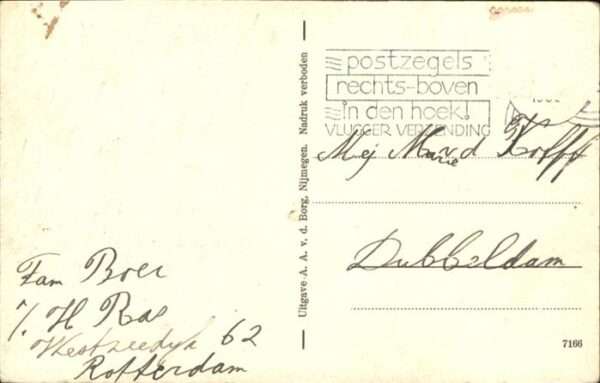 postzegels
rechts-boven
in den hoek!
VLUGGER VERZENDING
Mej Marie v d Kolff
Dubbeldam
Uitgave A. A. v. d. Borg, Nijmegen. Nadruk verboden
Fam Boer
%. H Ras
Westzeedijk 62
Rotterdam
7166